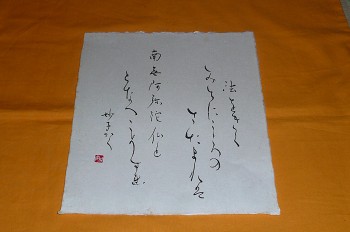 法をきく
みちにこころの
さだまれば
南無阿弥陀仏と
となへこそすれ